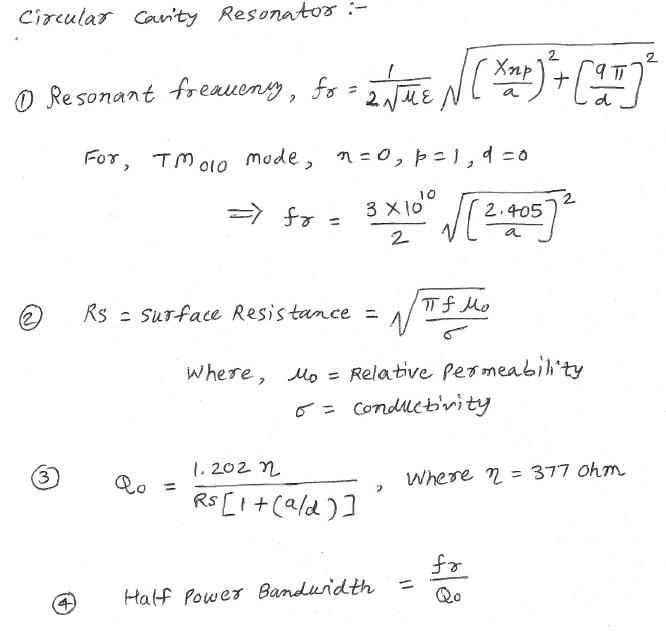 Circular Cavity Resonator :-
① Resonant frequency, fr = 1/(2√με) √[(Xnp/a)² + [qπ/d]²]
For, TM010 mode, n=0, p=1, q=0
⇒ fr = 3×10¹⁰/2 √[2.405/a]²
② Rs = Surface Resistance = √(πfμo/σ)
Where, μo = Relative Permeability
σ = Conductivity
③ Qo = 1.202η/(Rs[1+(a/d)]), Where η = 377 ohm
④ Half Power Bandwidth = fr/Qo